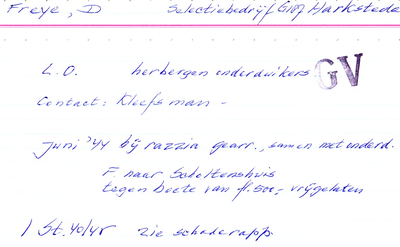 Freye, D Selectiebedrijf G107 Harkstede
L.O. herbergen onderduikers GV
Contact: Kleefsman -
Juni '44 bij razzia gearr., samen met onderd.
F. naar Scholtenshuis
tegen boete van fl.500,- vrijgelaten
St. 40/45 zie schaderapp.